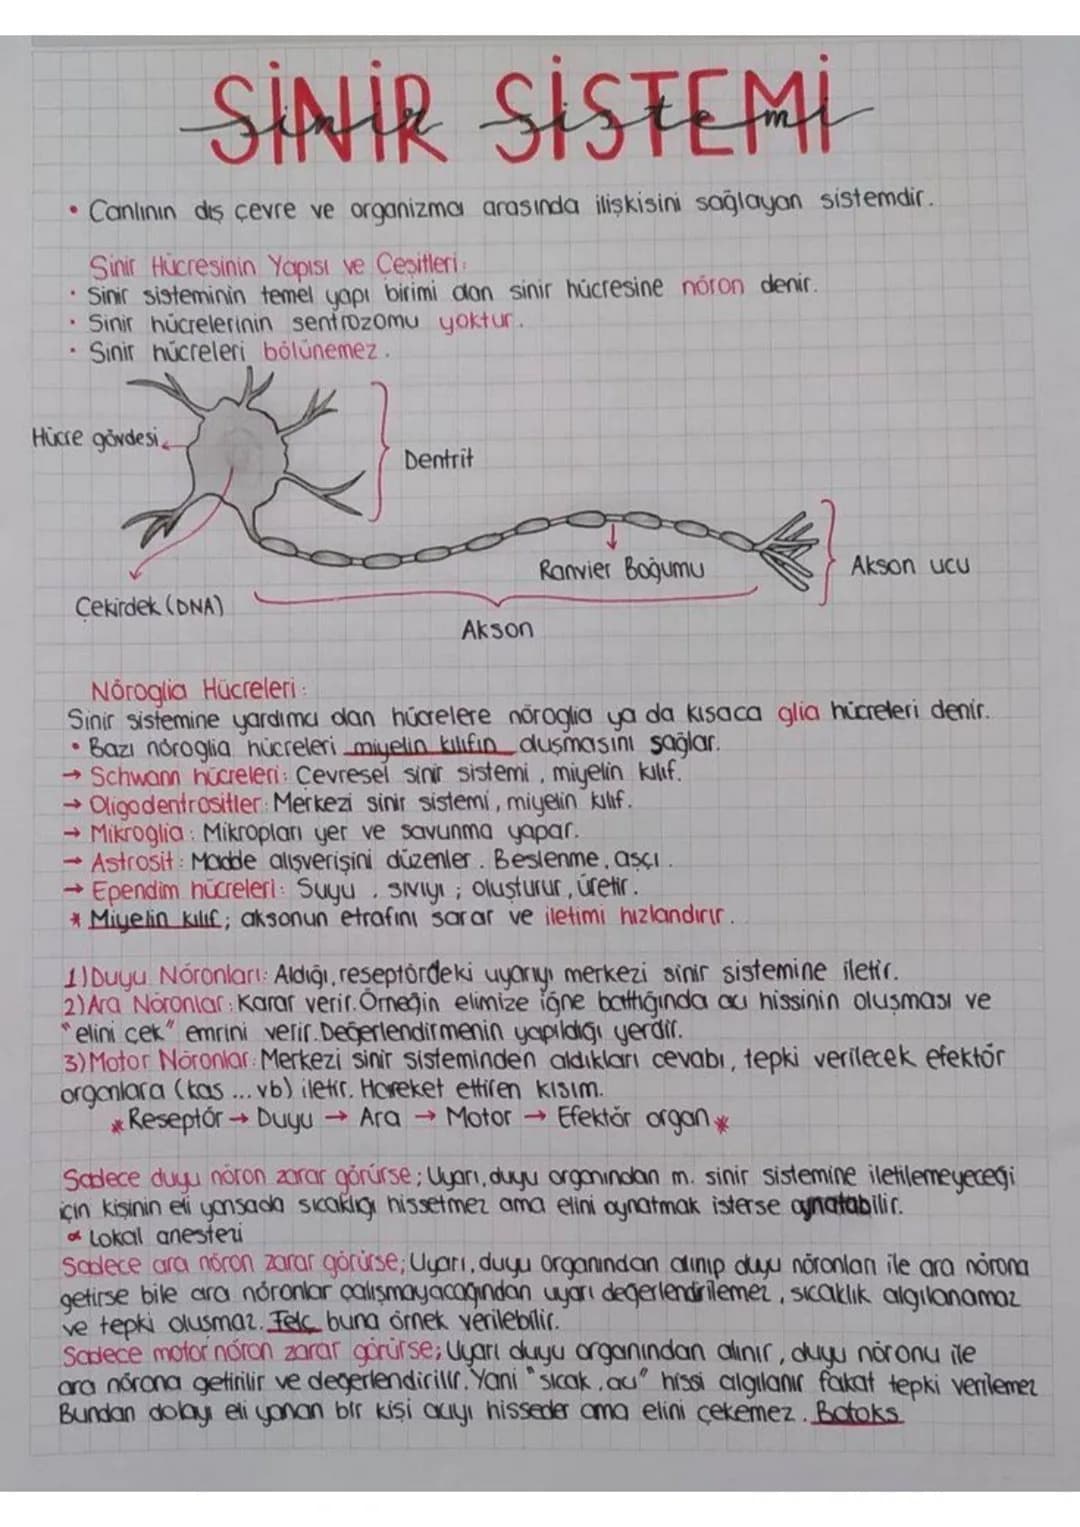 SİNİR SİSTEMİ
Sinir Sistemi
• Canlının dış çevre ve organizma arasında ilişkisini sağlayan sistemdir.
Sinir Hücresinin Yapısı ve Çeşitleri:
• Sinir sisteminin temel yapı birimi olan sinir hücresine nöron denir.
• Sinir hücrelerinin sentrozomu yoktur.
• Sinir hücreleri bölünemez.
Hücre gövdesi
Dentrit
Ranvier Boğumu
Akson ucu
Çekirdek (DNA)
Akson
Nöroglia Hücreleri:
Sinir sistemine yardımcı olan hücrelere nöroglia ya da kısaca glia hücreleri denir.
• Bazı nöroglia hücreleri miyelin kılıfın oluşmasını sağlar.
→ Schwann hücreleri: Çevresel sinir sistemi, miyelin kılıf.
→ Oligodentrositler: Merkezi sinir sistemi, miyelin kılıf.
→ Mikroglia: Mikropları yer ve savunma yapar.
→ Astrosit: Madde alışverişini düzenler. Beslenme, aşçı.
→ Ependim hücreleri: Suyu, sıvıyı; oluşturur, üretir.
* Miyelin kılıf; aksonun etrafını sarar ve iletimi hızlandırır.
1) Duyu Nöronları: Aldığı, reseptördeki uyarıyı merkezi sinir sistemine iletir.
2) Ara Nöronlar: Karar verir. Örneğin elimize iğne battığında acı hissinin oluşması ve
"elini çek" emrini verir. Değerlendirmenin yapıldığı yerdir.
3) Motor Nöronlar: Merkezi sinir sisteminden aldıkları cevabı, tepki verilecek efektör
organlara (kas ... vb) iletir. Hareket ettiren kısım.
* Reseptör → Duyu → Ara → Motor → Efektör organ *
Sadece duyu nöron zarar görürse; Uyarı, duyu organından m. sinir sistemine iletilemeyeceği
için kişinin eli yansada sıcaklığı hissetmez ama elini oynatmak isterse oynatabilir.
Lokal anestezi
Sadece ara nöron zarar görürse; Uyarı, duyu organından alınıp duyu nöronları ile ara nörona
getirse bile ara nöronlar çalışmayacağından uyarı değerlendirilemez, sıcaklık algılanamaz
ve tepki oluşmaz. Felç buna örnek verilebilir.
Sadece motor nöron zarar görürse; Uyarı duyu organından alınır, duyu nöronu ile
ara nörona getirilir ve değerlendirilir. Yani "sıcak, acı" hissi algılanır fakat tepki verilemez
Bundan dolayı eli yanan bir kişi acıyı hisseder ama elini çekemez. Botoks